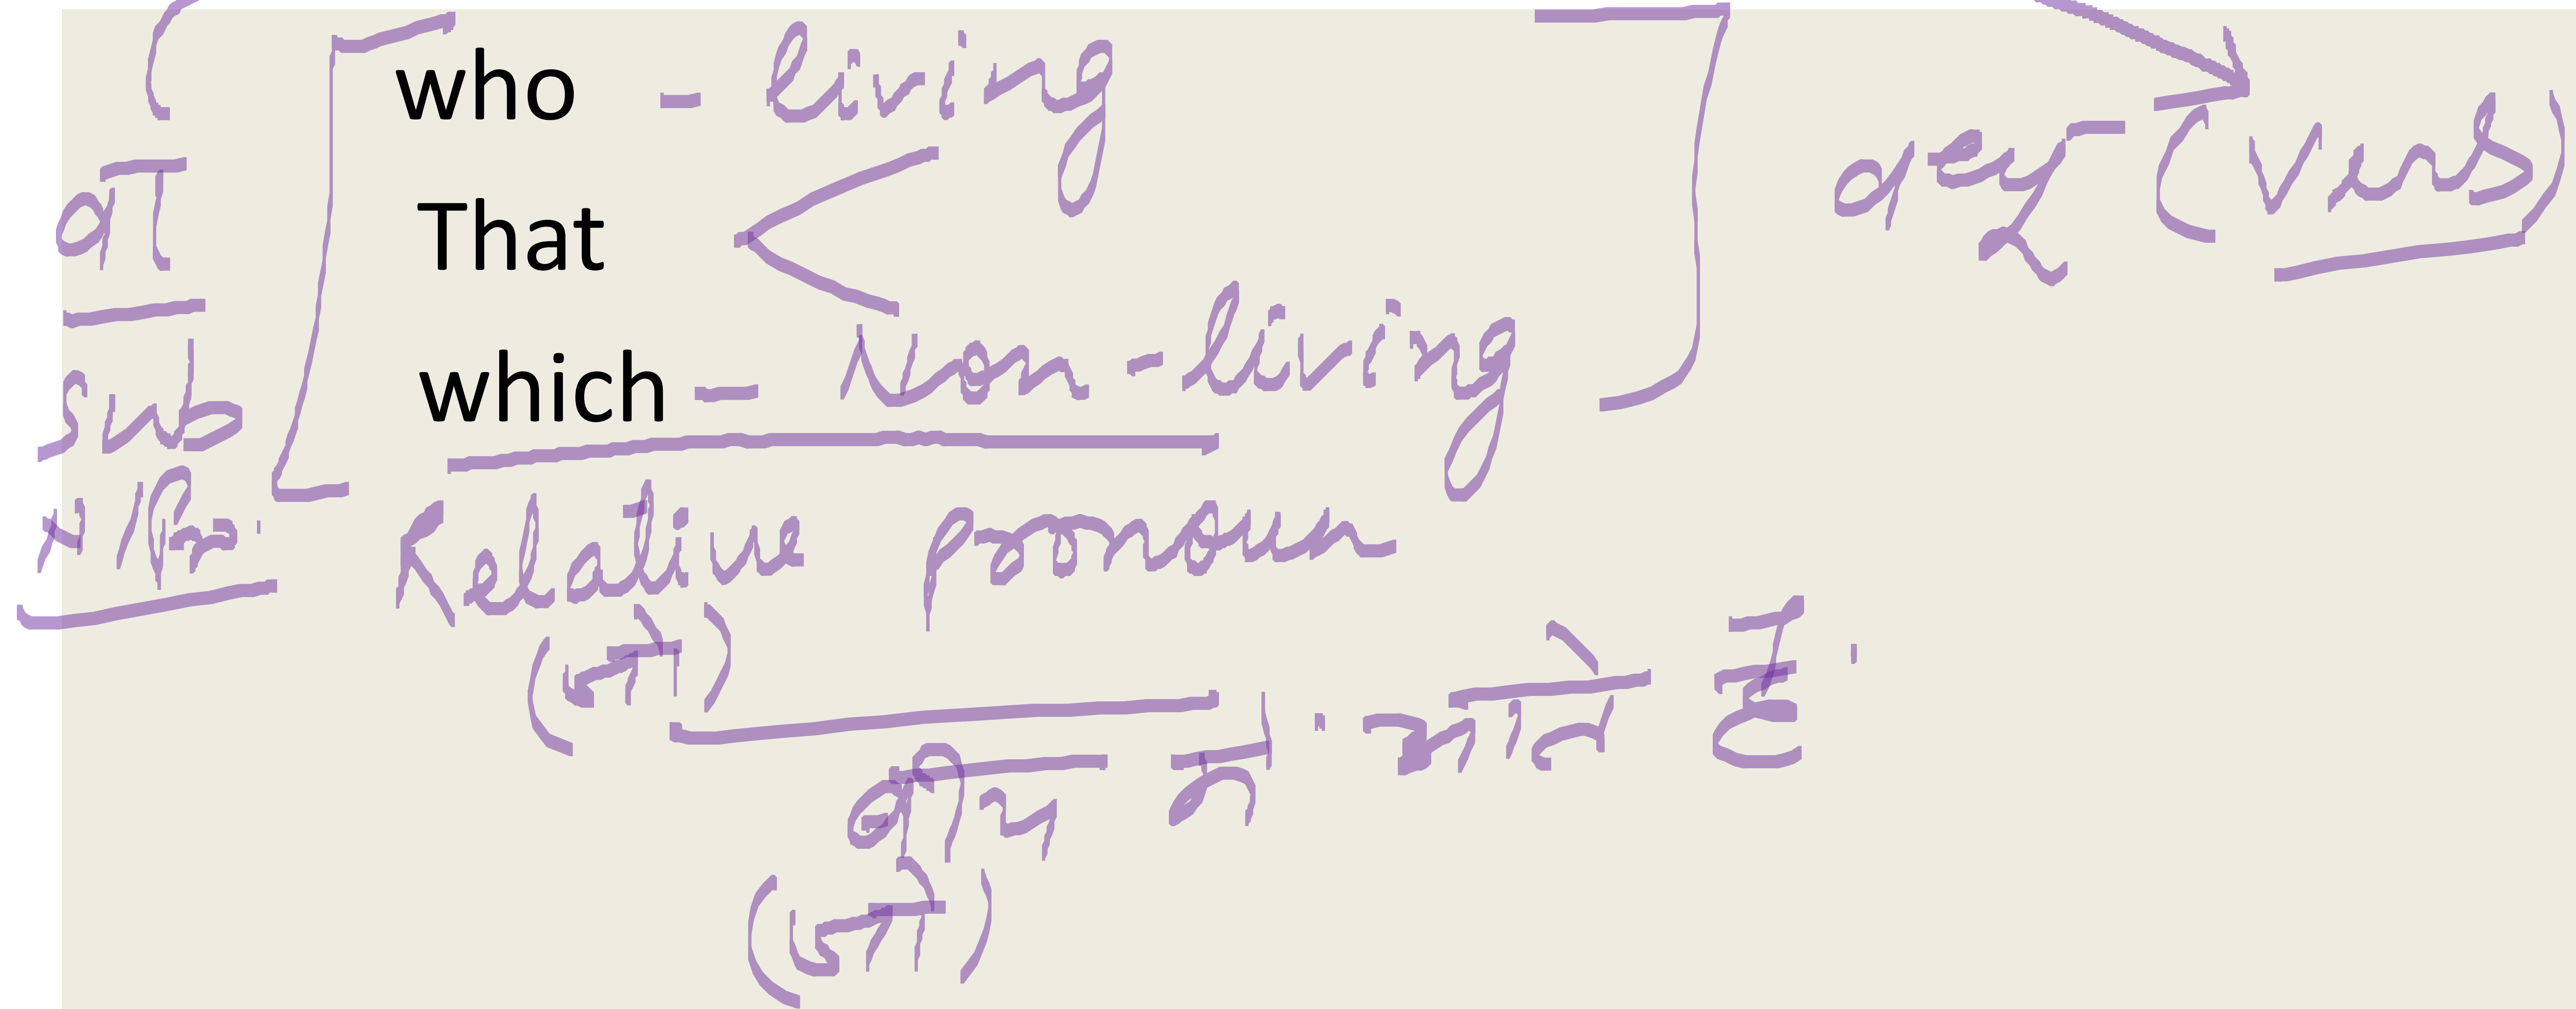 who - living
That
which - Non-living
sub
N/Pr.
(Verb)
Relative pronoun
(जो)
बीच में आते हैं
(जो)